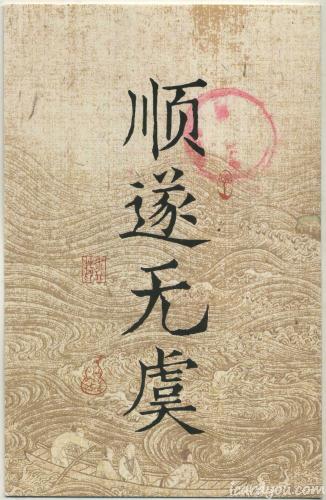 顺遂无虞
icardyou.com